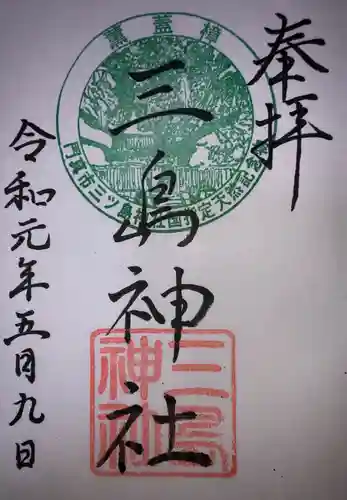 奉拝
三島神社
令和元年五月九日
薫蓋樟
門真市三ツ島神社国指定天然記念
三島神社